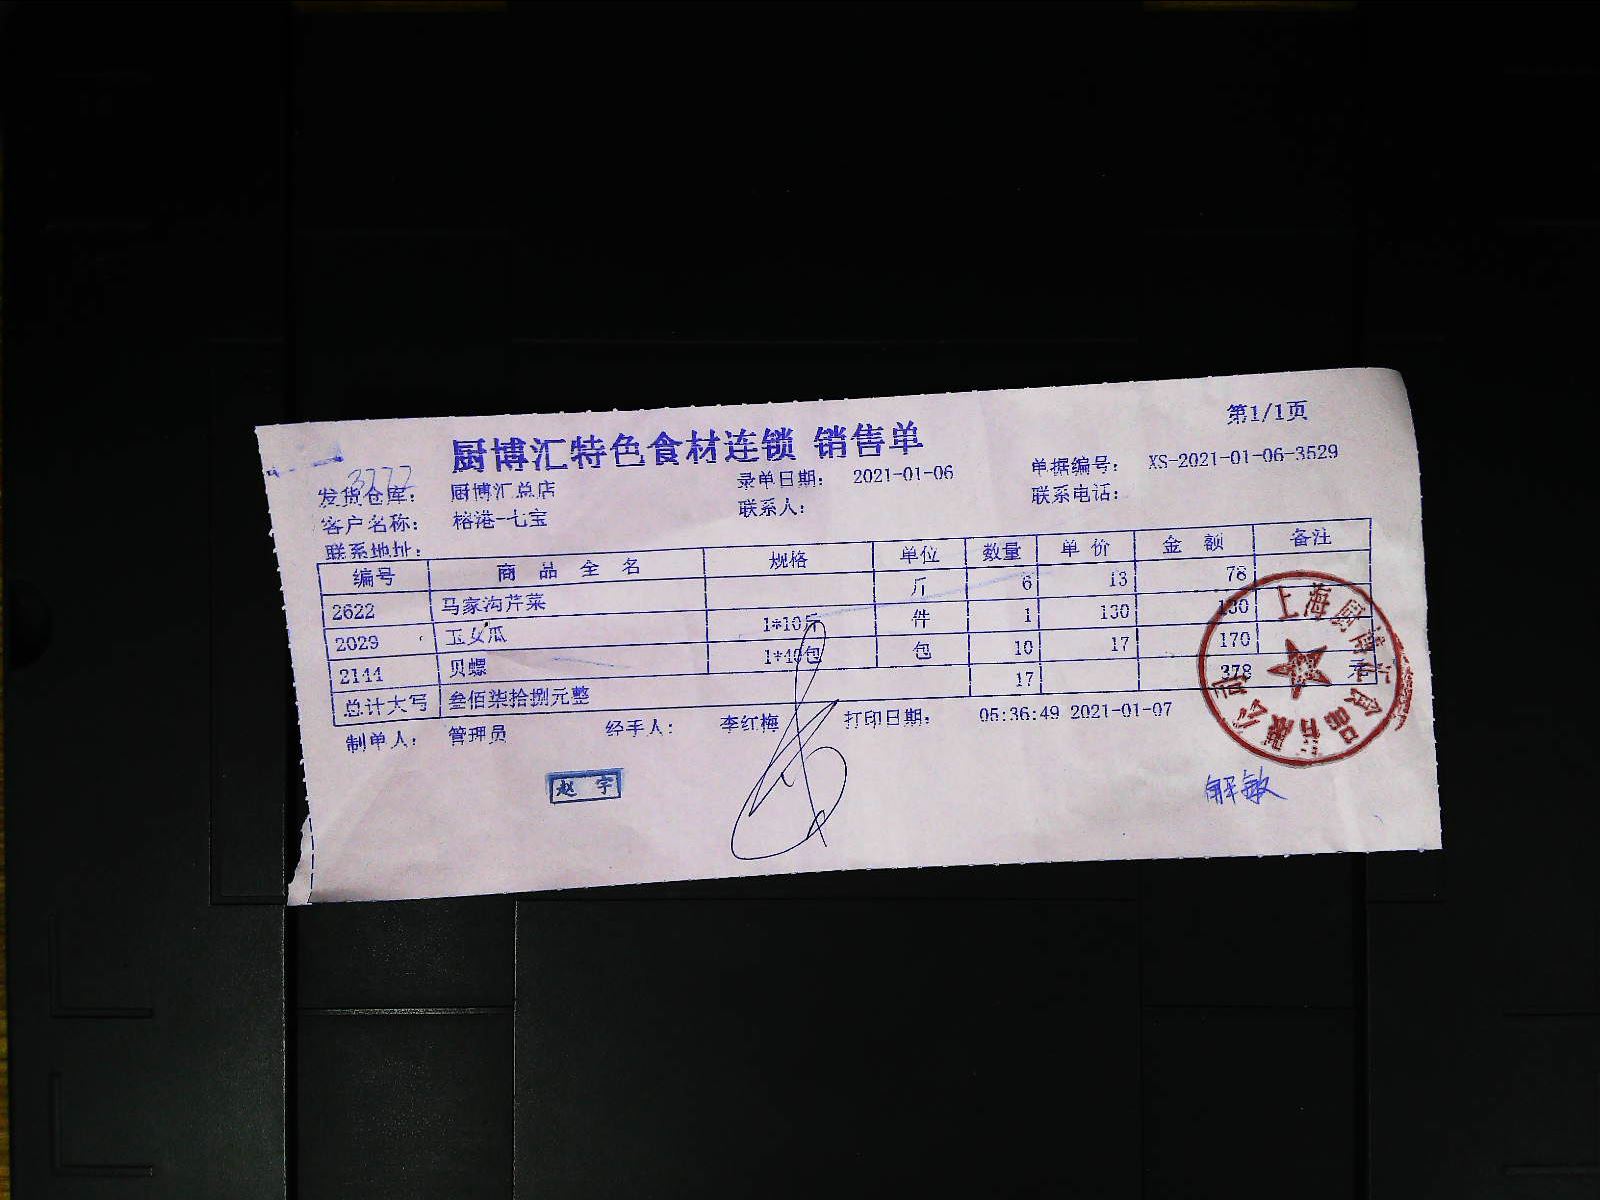 厨博汇特色食材连锁 销售单
第1/1页
3772
发货仓库: 厨博汇总店 录单日期: 2021-01-06 单据编号: XS-2021-01-06-3529
客户名称: 榕港-七宝 联系人: 联系电话:
联系地址:
编号 商品全名 规格 单位 数量 单价 金额 备注
2622 马家沟芹菜 斤 6 13 78
2029 玉女瓜 1*10斤 件 1 130 130
2144 贝螺 1*40包 包 10 17 170
总计大写 叁佰柒拾捌元整 17 378 元
制单人: 管理员 经手人: 李红梅 打印日期: 05:36:49 2021-01-07
上海厨博汇食品有限公司
赵宇
解敏